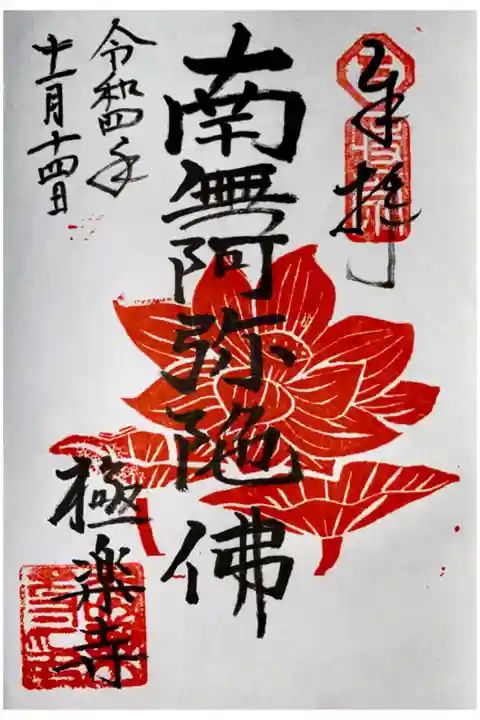 奉拝
南無阿弥陀佛
極楽寺
令和四年
十二月十四日